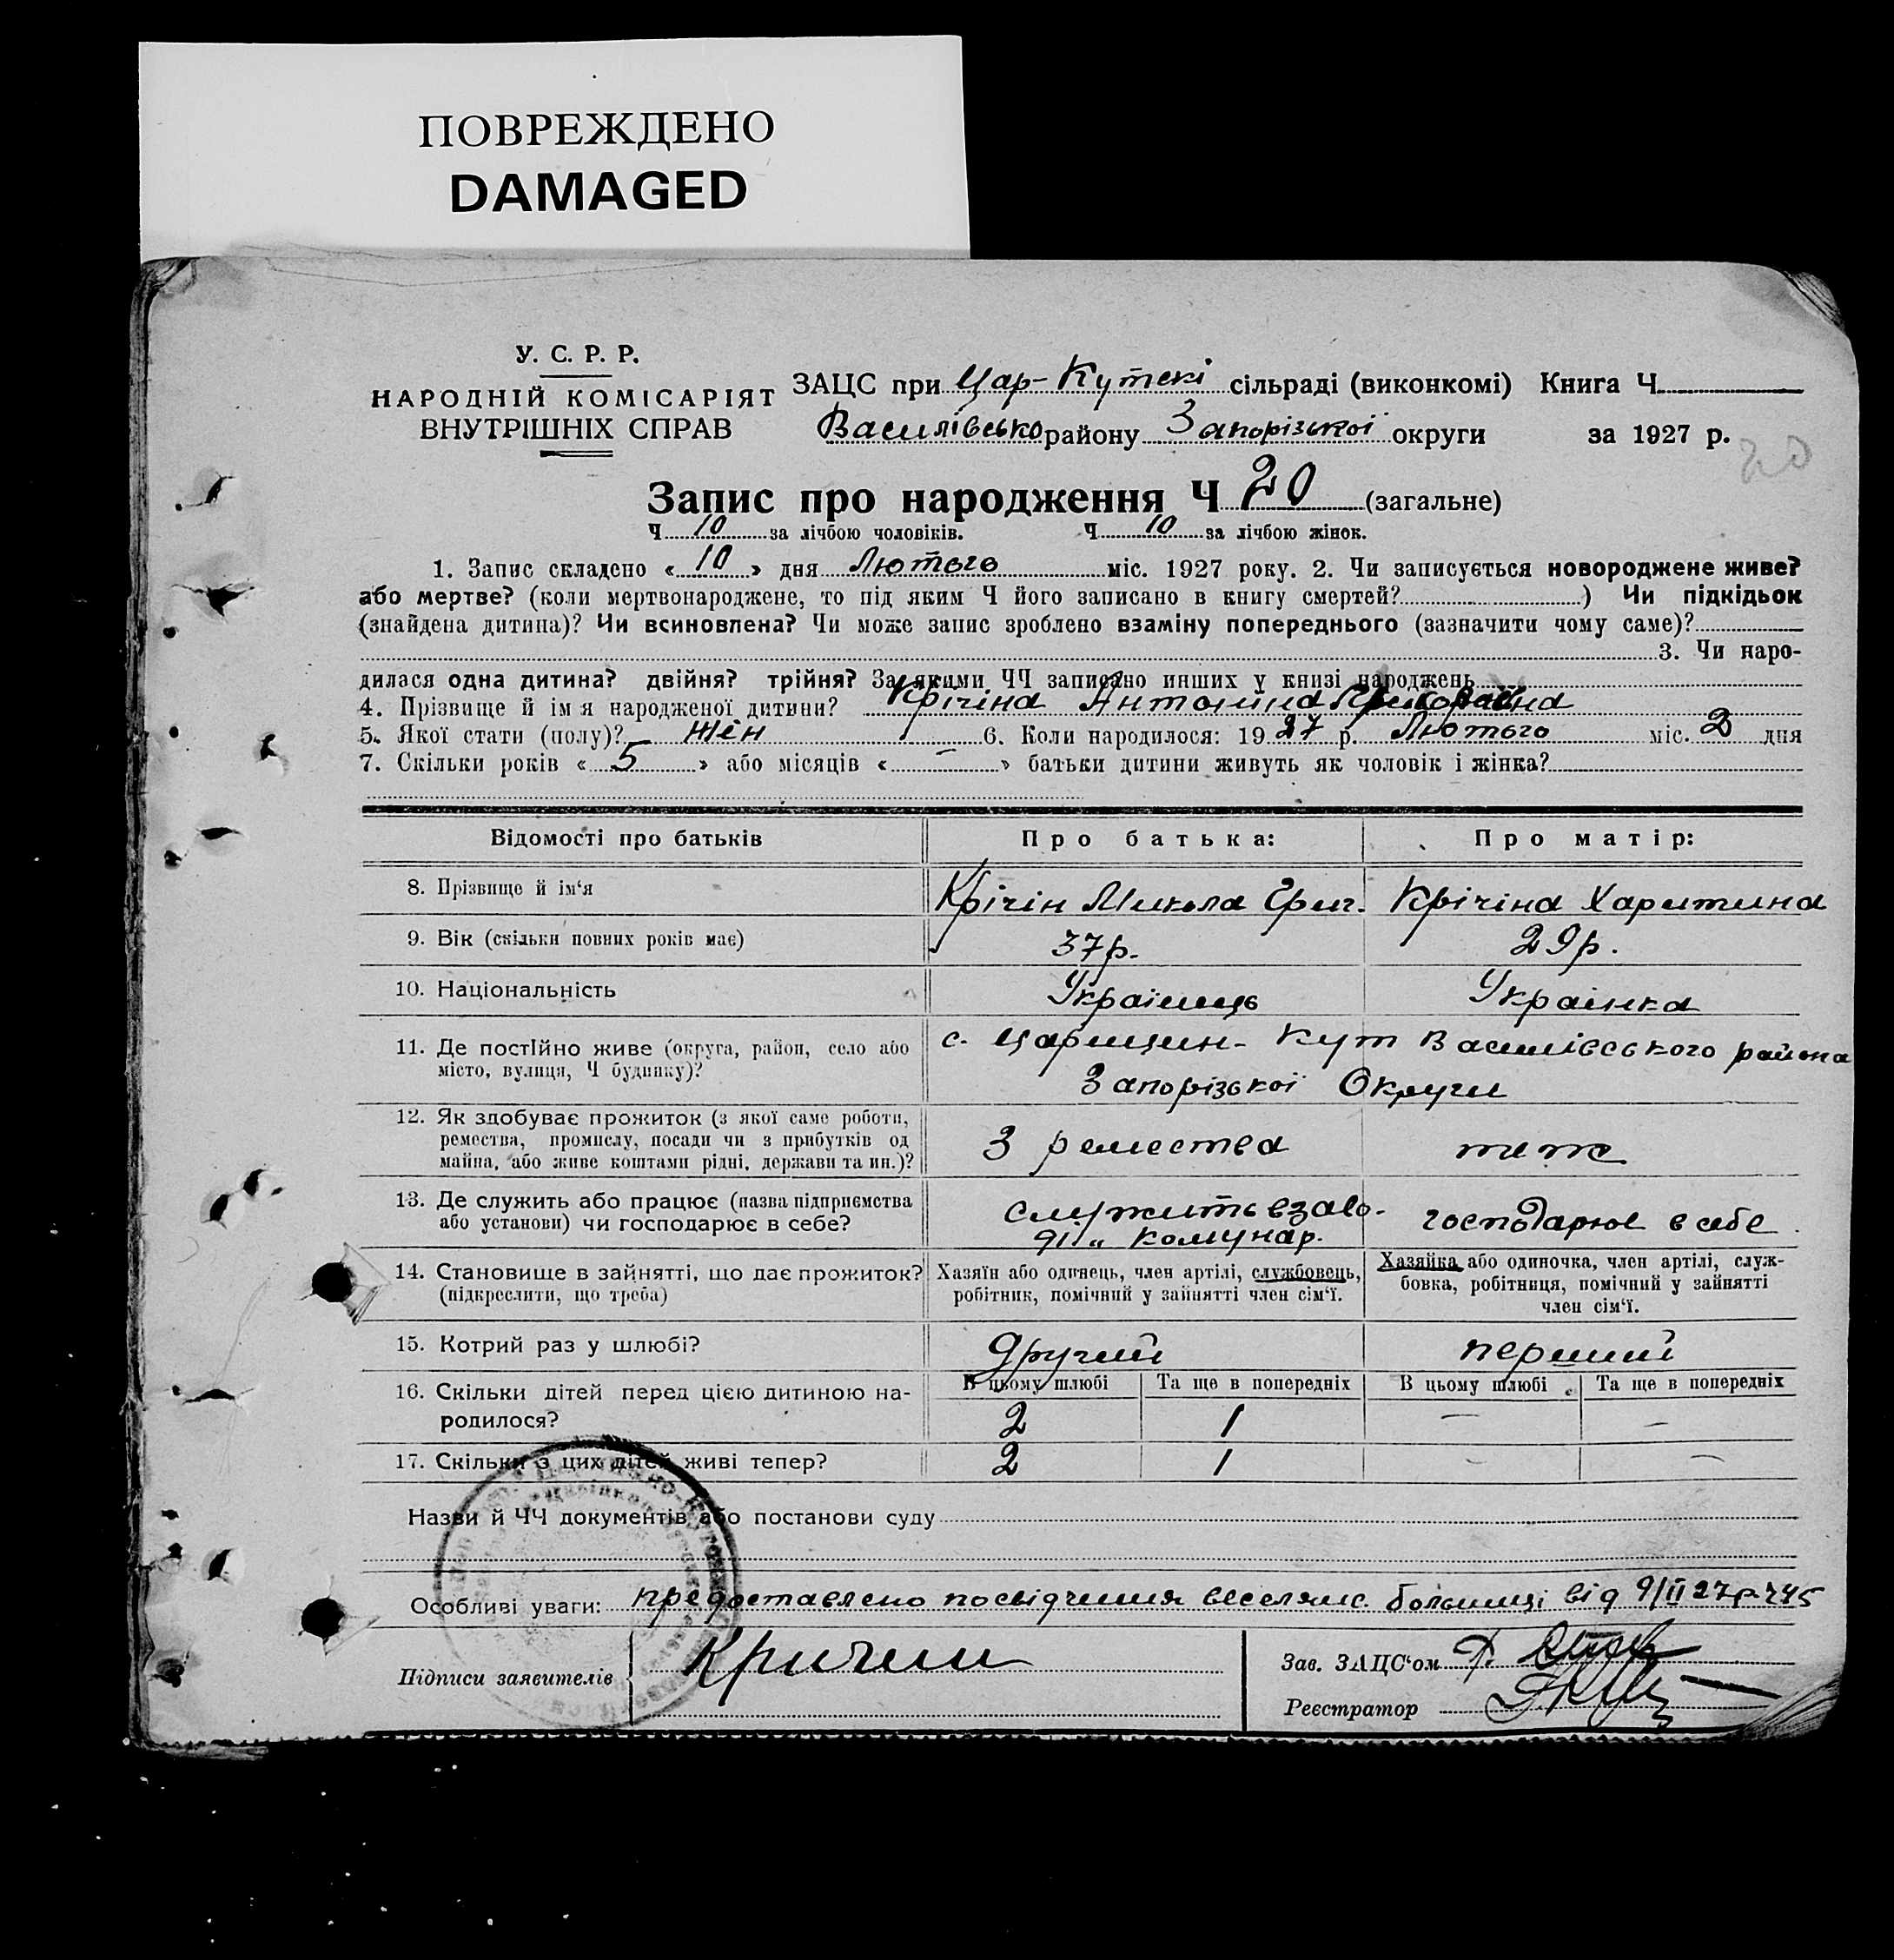 ПОВРЕЖДЕНО
DAMAGED
У. С. Р. Р.
НАРОДНІЙ КОМІСАРІЯТ
ВНУТРІШНІХ СПРАВ
ЗАЦС при Цар-Кутскі сільраді (виконкомі) Книга Ч.
Василівсько району Запорізької округи за 1927 р.
20
Запис про народження Ч 20 (загальне)
Ч 10 за лічбою чоловіків. Ч 10 за лічбою жінок.
1. Запис складено « 10 » дня Лютого міс. 1927 року. 2. Чи записується новороджене живе?
або мертве? (коли мертвонароджене, то під яким Ч його записано в книгу смертей? ) Чи підкідьок
(знайдена дитина)? Чи всиновлена? Чи може запис зроблено взаміну попереднього (зазначити чому саме)?
3. Чи наро-
дилася одна дитина? двійня? трійня? За якими ЧЧ записано инших у книзі народжень
4. Прізвище й ім я народженої дитини? Крічіна Антоніна
5. Якої стати (полу)? Жін 6. Коли народилося: 19 27 р. Лютого міс. 2 дня
7. Скільки років « 5 » або місяців « – » батьки дитини живуть як чоловік і жінка?
Відомості про батьків Про батька: Про матір:
8. Прізвище й ім‘я Крічін Микола Григ. Крічіна Харитина
9. Вік (скільки повних років має) 37р. 29р.
10. Національність Украінець Украінка
11. Де постійно живе (округа, район, село або
місто, вулиця, Ч будинку)?
с. Царицин-Кут Василівського района
Запорізької Округи
12. Як здобуває прожиток (з якої саме роботи,
ремества, промислу, посади чи з прибутків од
майна, або живе коштами рідні, держави та ин.)?
З ремества теж
13. Де служить або працює (назва підприємства
або установи) чи господарює в себе?
служить взаво-
ді „ Комунар.
господарює в себе
14. Становище в зайнятті, що дає прожиток?
(підкреслити, що треба)
Хазяїн або одинець, член артілі, службовець,
робітник, помічний у зайнятті член сім‘ї.
Хазяйка або одиночка, член артілі, служ-
бовка, робітниця, помічний у зайнятті
член сім‘ї.
15. Котрий раз у шлюбі? другий перший
16. Скільки дітей перед цією дитиною на-
родилося?
В цьому шлюбі Та ще в попередніх В цьому шлюбі Та ще в попередніх
2 1 – –
17. Скільки з цих дітей живі тепер? 2 1 – –
Назви й ЧЧ документів або постанови суду
Особливі уваги: предоставлено посвідчення веселянс. больниці від 9/II 27р. Ч45
Підписи заявителів Кричин
Зав. ЗАЦС‘ом
Реєстратор